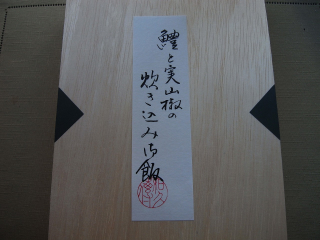 鱧と実山椒の
炊き込み御飯